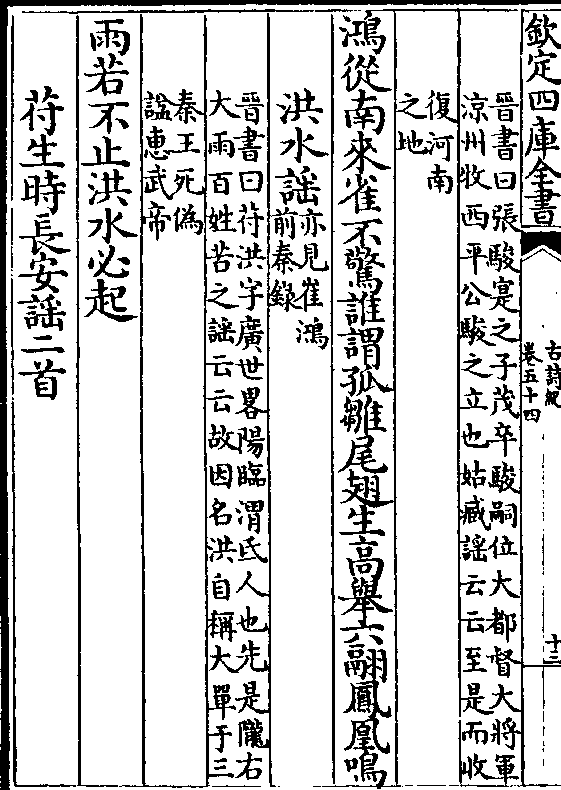 欽定四庫全書
古詩紀
卷五十四
十三
晉書曰張駿寔之子茂卒駿嗣位大都督大將軍
涼州牧西平公駿之立也姑臧謡云云至是而收
復河南
之地
鴻從南來雀不驚誰謂孤雛尾翅生高舉六翮鳳凰鳴
洪水謡亦見崔鴻
前秦錄
晉書曰苻洪字廣世畧陽臨渭氐人也先是隴右
大雨百姓苦之謡云云故因名洪自稱大單于三
秦王死偽
諡惠武帝
雨若不止洪水必起
苻生時長安謡二首